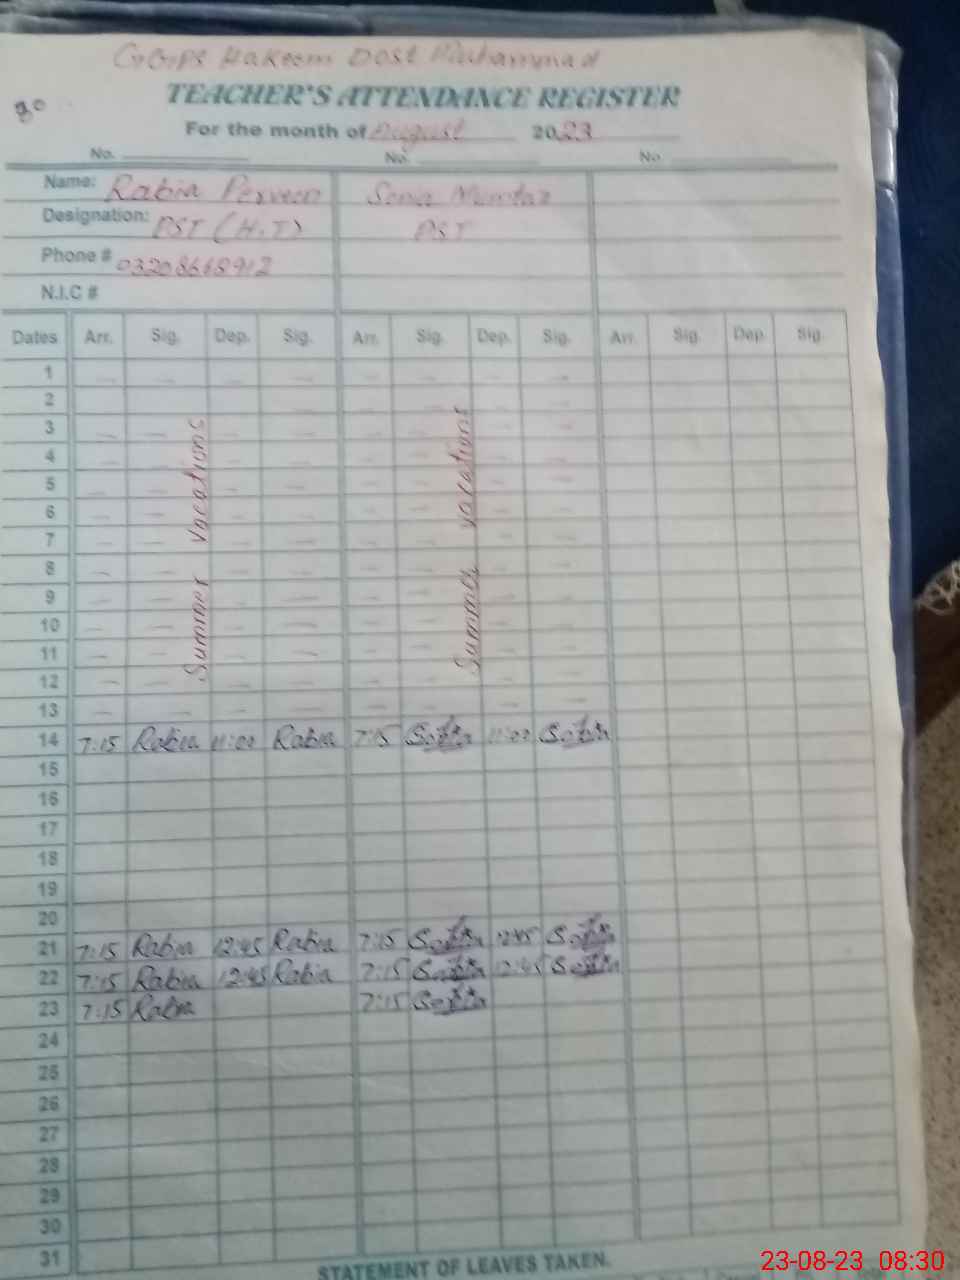 GGPS Hakeem Dost Muhammad
30
TEACHER'S ATTENDANCE REGISTER
For the month of August 2023
No. No. No
Name: Rabia Perveen Sonia Mumtaz
Designation: PST (H.T) PST
Phone # 03208668912
N.I.C #
Dates Arr. Sig. Dep. Sig. Arr. Sig. Dep. Sig. Arr. Sig. Dep Sig.
1
2
3
4
5
6
7
8
9
10
11
12
13
Summer Vacations
Summer vacations
14 7:15 Rabia 11:00 Rabia 7:15 11:00
15
16
17
18
19
20
21 7:15 Rabia 12:45 Rabia 7:15 12:45
22 7:15 Rabia 12:45 Rabia 7:15 12:45
23 7:15 Rabia 7:15
24
25
26
27
28
29
30
31
STATEMENT OF LEAVES TAKEN.
23-08-23 08:30